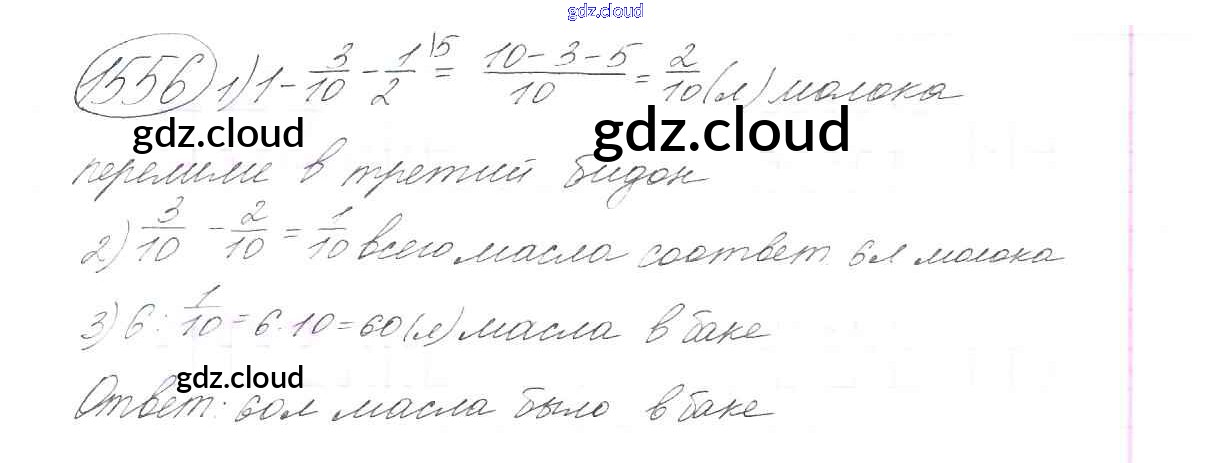 gdz.cloud
1556 1) 1 - 3/10 - 1/2 \5 = (10 - 3 - 5)/10 = 2/10 (л) молока
gdz.cloud gdz.cloud
перелили в третий бидон
2) 3/10 - 2/10 = 1/10 всего масла соответ. 6л молока
3) 6 : 1/10 = 6 · 10 = 60 (л) масла в баке
gdz.cloud
Ответ: 60л масла было в баке